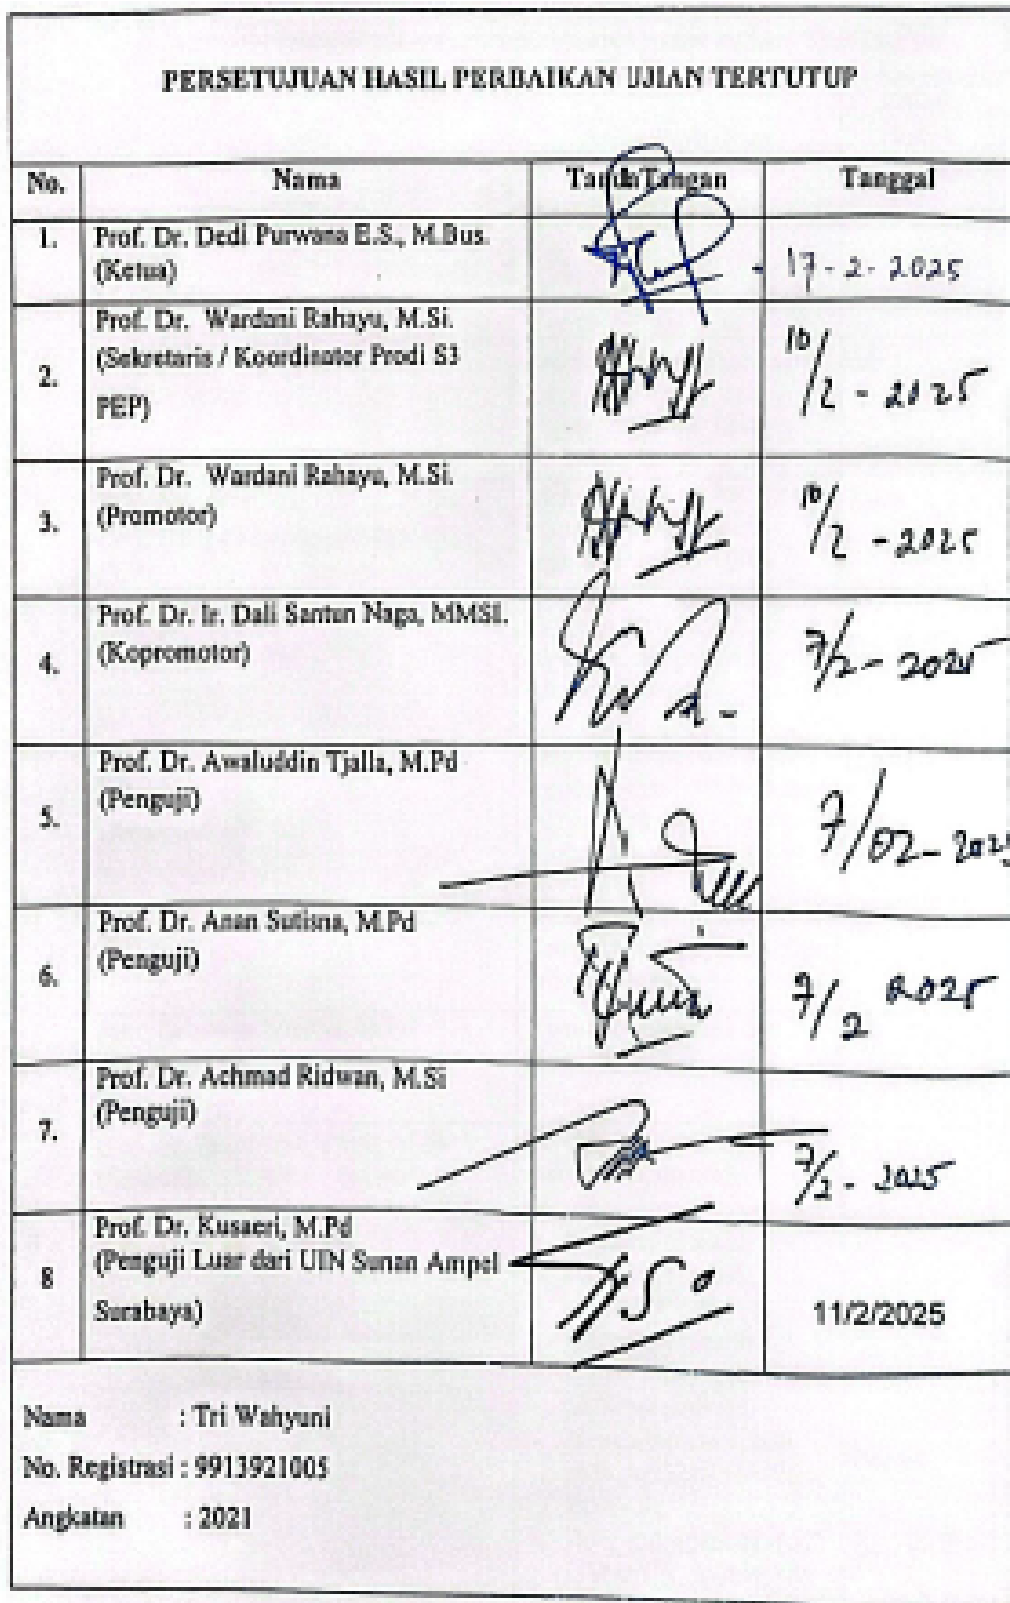 PERSETUJUAN HASIL PERBAIKAN UJIAN TERTUTUP
No. Nama Tanda Tangan Tanggal
1. Prof. Dr. Dedi Purwana E.S., M.Bus.
(Ketua)
17 - 2 - 2025
2. Prof. Dr. Wardani Rahayu, M.Si.
(Sekretaris / Koordinator Prodi S3
PEP)
10/2 - 2025
3. Prof. Dr. Wardani Rahayu, M.Si.
(Promotor)
10/2 - 2025
4. Prof. Dr. Ir. Dali Santun Naga, MMSI.
(Kopromotor)
7/2 - 2025
5. Prof. Dr. Awaluddin Tjalla, M.Pd
(Penguji)
7/02 - 2025
6. Prof. Dr. Anan Sutisna, M.Pd
(Penguji)
7/2 2025
7. Prof. Dr. Achmad Ridwan, M.Si
(Penguji)
7/2 - 2025
8 Prof. Dr. Kusaeri, M.Pd
(Penguji Luar dari UIN Sunan Ampel
Surabaya)
11/2/2025
Nama : Tri Wahyuni
No. Registrasi : 9913921005
Angkatan : 2021